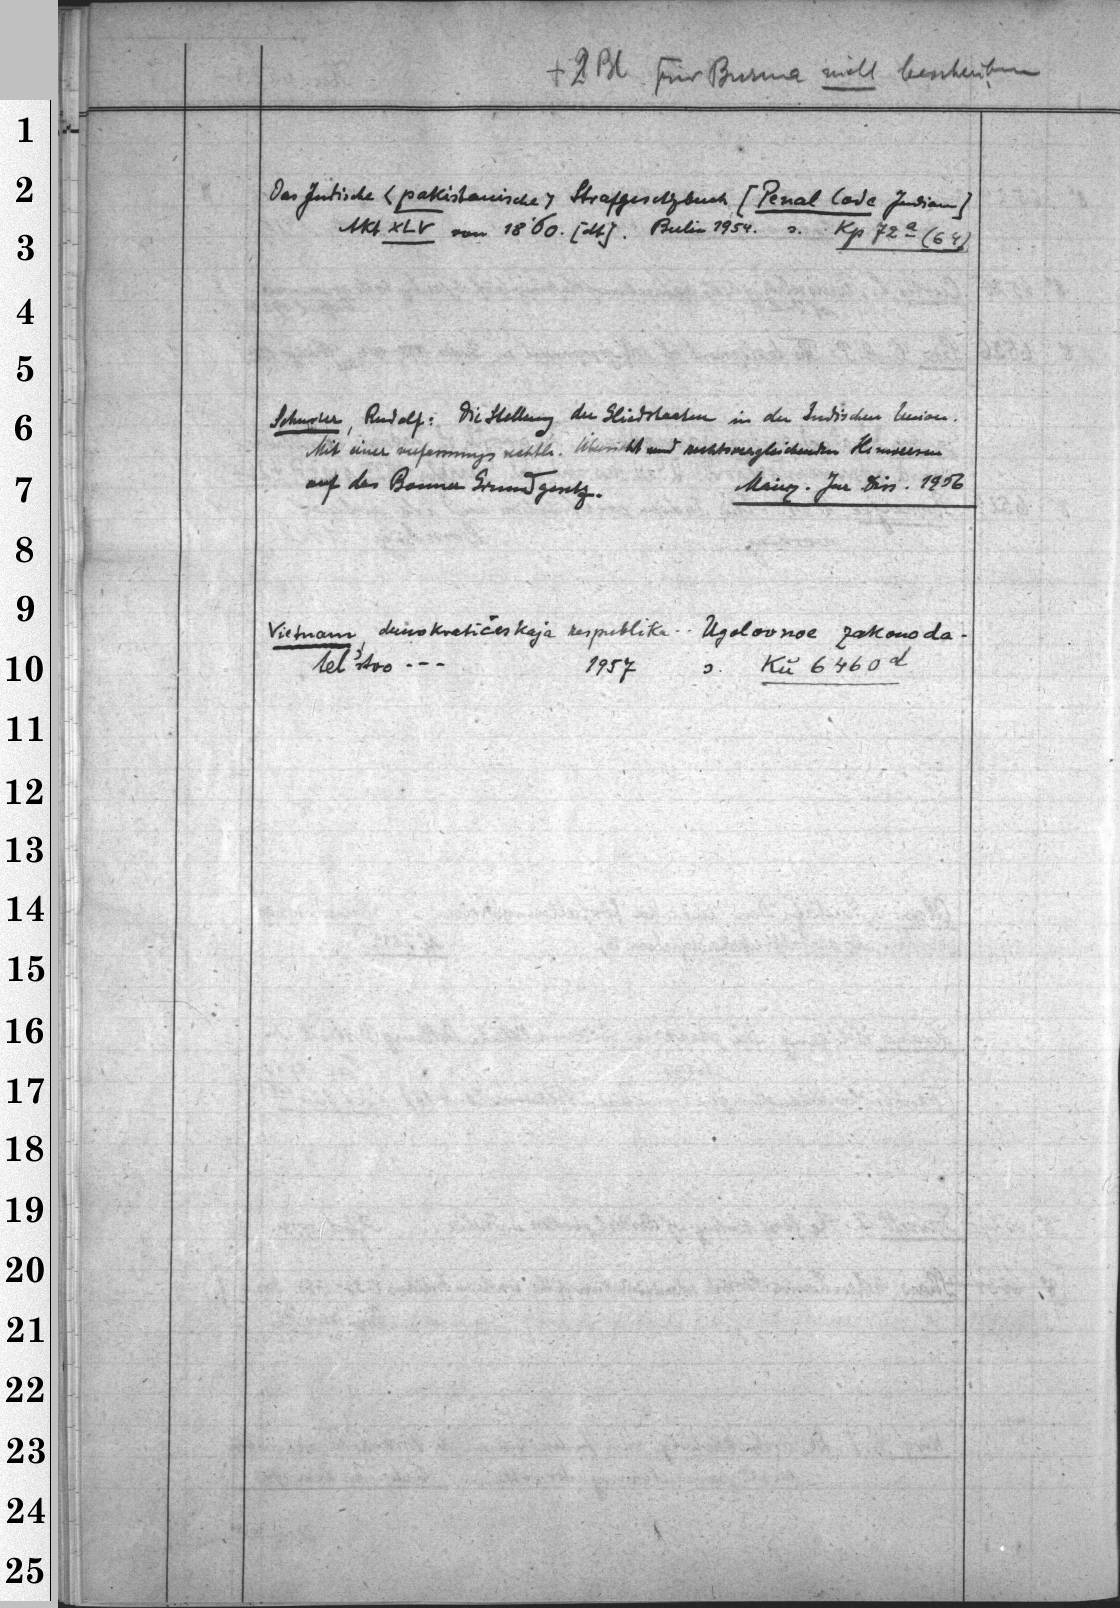 + 2 Bl für Burma nicht beschreiben
1
2
Das Indische < pakistanische > Strafgesetzbuch [Penal Code Indian]
3
Akt XLV von 1860. [dt]. Berlin 1954. s. Kp 72 a (64)
4
5
6
Schuster, Rudolf: Die Stellung der Gliedstaaten in der Indischen Union.
Mit einer verfassungsrechtl. Übersicht und rechtsvergleichenden Hinweisen
7
auf das Bonner Grundgesetz. Mainz. Jur Diss. 1956
8
9
Vietnam, demokratičeskaja respublika.. Ugolovnoe zakonoda-
10
tel'stvo --- 1957 s. Kü 6460 d
11
12
13
14
15
16
17
18
19
20
21
22
23
24
25